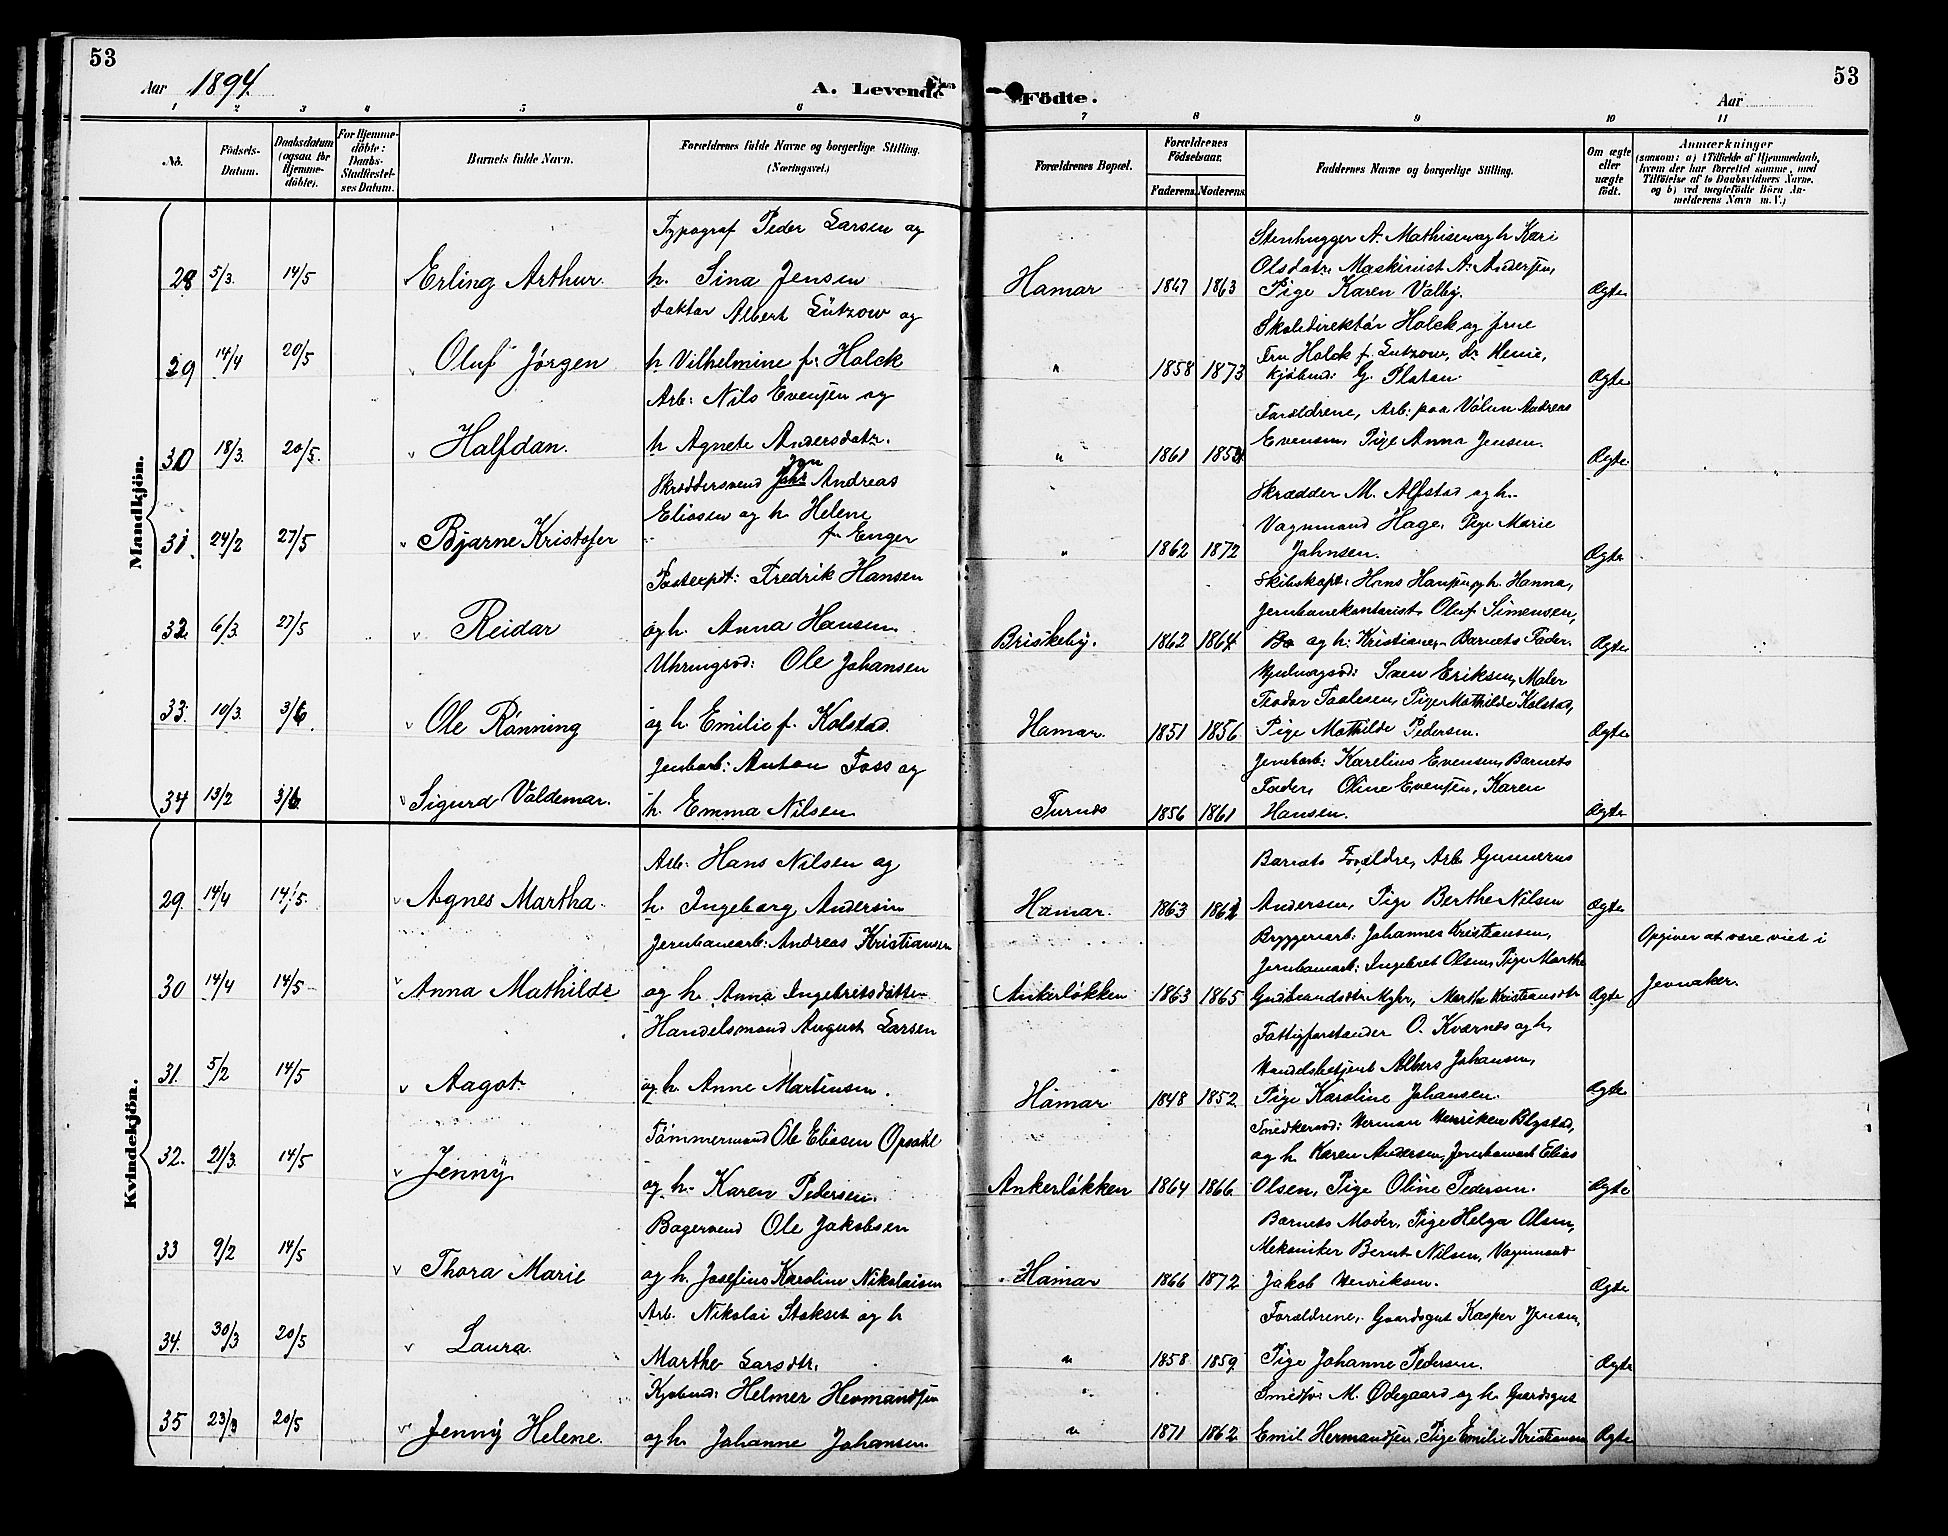 53
Aar 1894.
A. Levende
Födte.
Aar
53
1 2 3 4 5 6 7 8 9 10 11
No.
Födsels-Datum.
Daabsdatum (ogsaa for Hjemme-döbte).
For Hjemme-döbte: Daabs-Stadfæstel-ses Datum.
Barnets fulde Navn.
Forældrenes fulde Navne og borgerlige Stilling.
(Næringsvei.)
Forældrenes Bopæl.
Forældrenes Födselsaar.
Faderens. Moderens.
Faddernes Navne og borgerlige Stilling.
Om ægte eller uægte født.
Anmærkninger
(saasom: a) i Tilfælde af Hjemmedaab, hvem der har forrettet samme, med Tilföielse af to Daabsvidners Navne, og b) ved uægtefödte Börn An-melderens Navn m. V.)
Mandkjön.
Typograf Peder Larsen og
28 5/3. 14/5 Erling Arthur. h. Sina Jensen
Hamar 1867 1863
Stenhugger A. Mathisen og h Kari
Olsdatr, Maskinist A. Andersen,
Pige Karen Valby. Ægte
Doktor Albert Lützow og
29 14/4 20/5 Oluf Jørgen h Vilhelmine f. Holck
" 1858 1873
Skoledirektör Holck og
Fru Holck f. Lutzow, Dr
Kjöbmd: G. Platou. Ægte
Arb: Nils Evensen og
30 18/3. 20/5. Halfdan. h Agnete Andersdatr.
" 1861
Forældrene, Arb: paa Andreas
Evensen, Pige Anna Jensen. Ægte
Skræddersvend Andreas
Eliasen og h. Helene
f. Enger
31. 24/2 27/5 Bjarne Kristofer
" 1862 1872
Skrædder M. Alfstad og h.
Vognmand Hage, Pige Marie
Jahnsen. Ægte
Postexpt: Fredrik Hansen
32. 6/3. 27/5 Reidar og h. Anna Hansen
Briskeby. 1862 1864
Skibskapt: Hans Hansen og h. Hanna,
Jernbanekontorist Oluf Simensen,
og h: Kristiane, Barnets Fader. Ægte
Ole Johansen
33. 10/3. 3/6. Ole Rønning og h. Emilie f. Kolstad.
Hamar. 1851 1856
Eriksen, Maler
Pige Mathilde Kolstad,
Pige Mathilde Pedersen. Ægte
Jernbarb: Anton Foss og
34 13/2 3/6 Sigurd Valdemar. h. Emma Nilsen
Furnes 1856 1861
Jernbarb: Karelius Evensen, Barnets
Fader, Oline Evensen, Karen
Hansen. Ægte
Kvindekjön.
Arb: Hans Nilsen og
29. 14/4 14/5. Agnes Martha. h. Ingeborg Andersen
Hamar. 1863
Barnets Forældre, Arb Gunnerus
Andersen, Pige Berthe Nilsen Ægte
Jernbanearb: Andreas Kristiansen
30 14/4 14/5 Anna Mathilde og h. Anna Ingebretsdatter
Ankerløkken 1863 1865
Bryggeriarb: Johannes Kristiansen,
Jernbanearb: Ingebret Olsen, Pige Marthe
Gudbrandsdtr Myhr, Marthe Kristiansdtr Ægte
Opgiver at være viet i
Jevnaker.
Handelsmand August Larsen
31. 5/2 14/5 Aagot og h. Anne Martinsen.
Hamar 1848 1852
Fattigforstander O. Kværnes og h,
Handelsbetjent Albert Johansen,
Pige Karoline Johansen. Ægte
Tömmermand Ole Eliasen Opsahl
32. 21/3. 14/5 Jenny og h. Karen Pedersen.
Ankerløkken 1864 1866
Snedkersvd: Herman Henriksen Blystad,
og h. Karen Andersen, Jernbanearb Elias
Olsen, Pige Oline Pedersen. Ægte
Bagersvend Ole Jakobsen
33 9/2 14/5 Thora Marie og h. Josefine Karoline Nikolaisen
Hamar 1866 1872
Barnets Moder, Pige Helga Olsen,
Mekaniker Bernt Nilsen, Vognmand
Jakob Henriksen. Ægte
Arb. Nikolai Stokset og h
34. 30/3 20/5 Laura Marthe Larsdtr.
" 1858 1859
Forældrene, Gaardsgut Kasper Jensen,
Pige Johanne Pedersen. Ægte
Kjøbmd: Helmer Hermandsen
35 23/3 20/5 Jenny Helene. og h. Johanne Johansen
" 1871 1862
M. Ødegaard og h. Gaardsgut
Emil Hermandsen, Pige Emilie Kristiansen Ægte